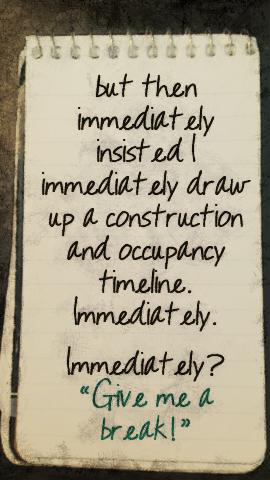 but then
immediately
insisted I
immediately draw
up a construction
and occupancy
timeline.
Immediately.
Immediately?
“Give me a
break!”